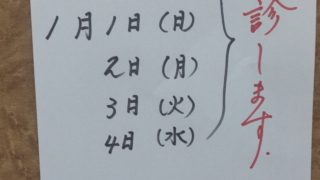 1月1日(日)
2日(月)
3日(火)
4日(水)
診します.